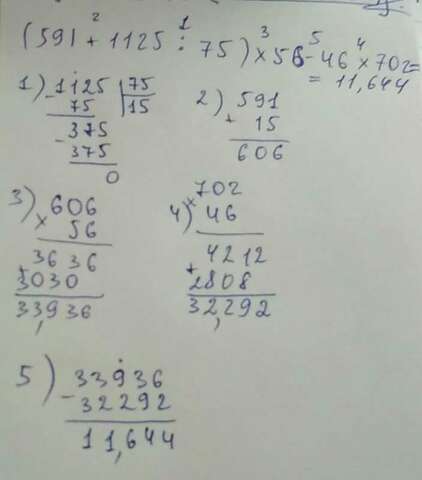 (591 + 1125 : 75) × 56 - 46 × 702 =
2 1 3 5 4
= 11,644
1) 1125 | 75
- 75 | 15
375
- 375
0
2) 591
+ 15
606
3) 606
× 56
3636
+ 3030
33,936
4) 702
× 46
4212
+ 2808
32,292
5) 33936
- 32292
11,644